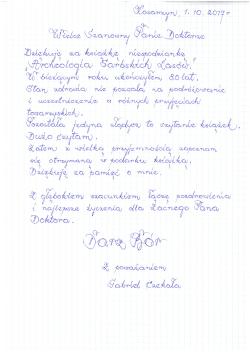 1.10.2017r.
Wielce Szanowny Panie Doktorze
Dziękuję za książkę niespodziankę
"Archeologia Garbskich Lasów".
W bieżącym roku ukończyłem 80 lat.
Stan zdrowia nie pozwala na podróżowanie
i uczestniczenie w różnych przyjęciach
towarzyskich.
Pozostała jedyna słodycz to czytanie książek.
Dużo czytam.
Zatem z wielką przyjemnością zapoznam
się otrzymaną w podarku książką.
Dziękuję za pamięć o mnie.
Z głębokim szacunkiem łączę pozdrowienia
i najlepsze życzenia dla Zacnego Pana
Doktora.
Darz Bór
Z poważaniem
Gabriel Czekała